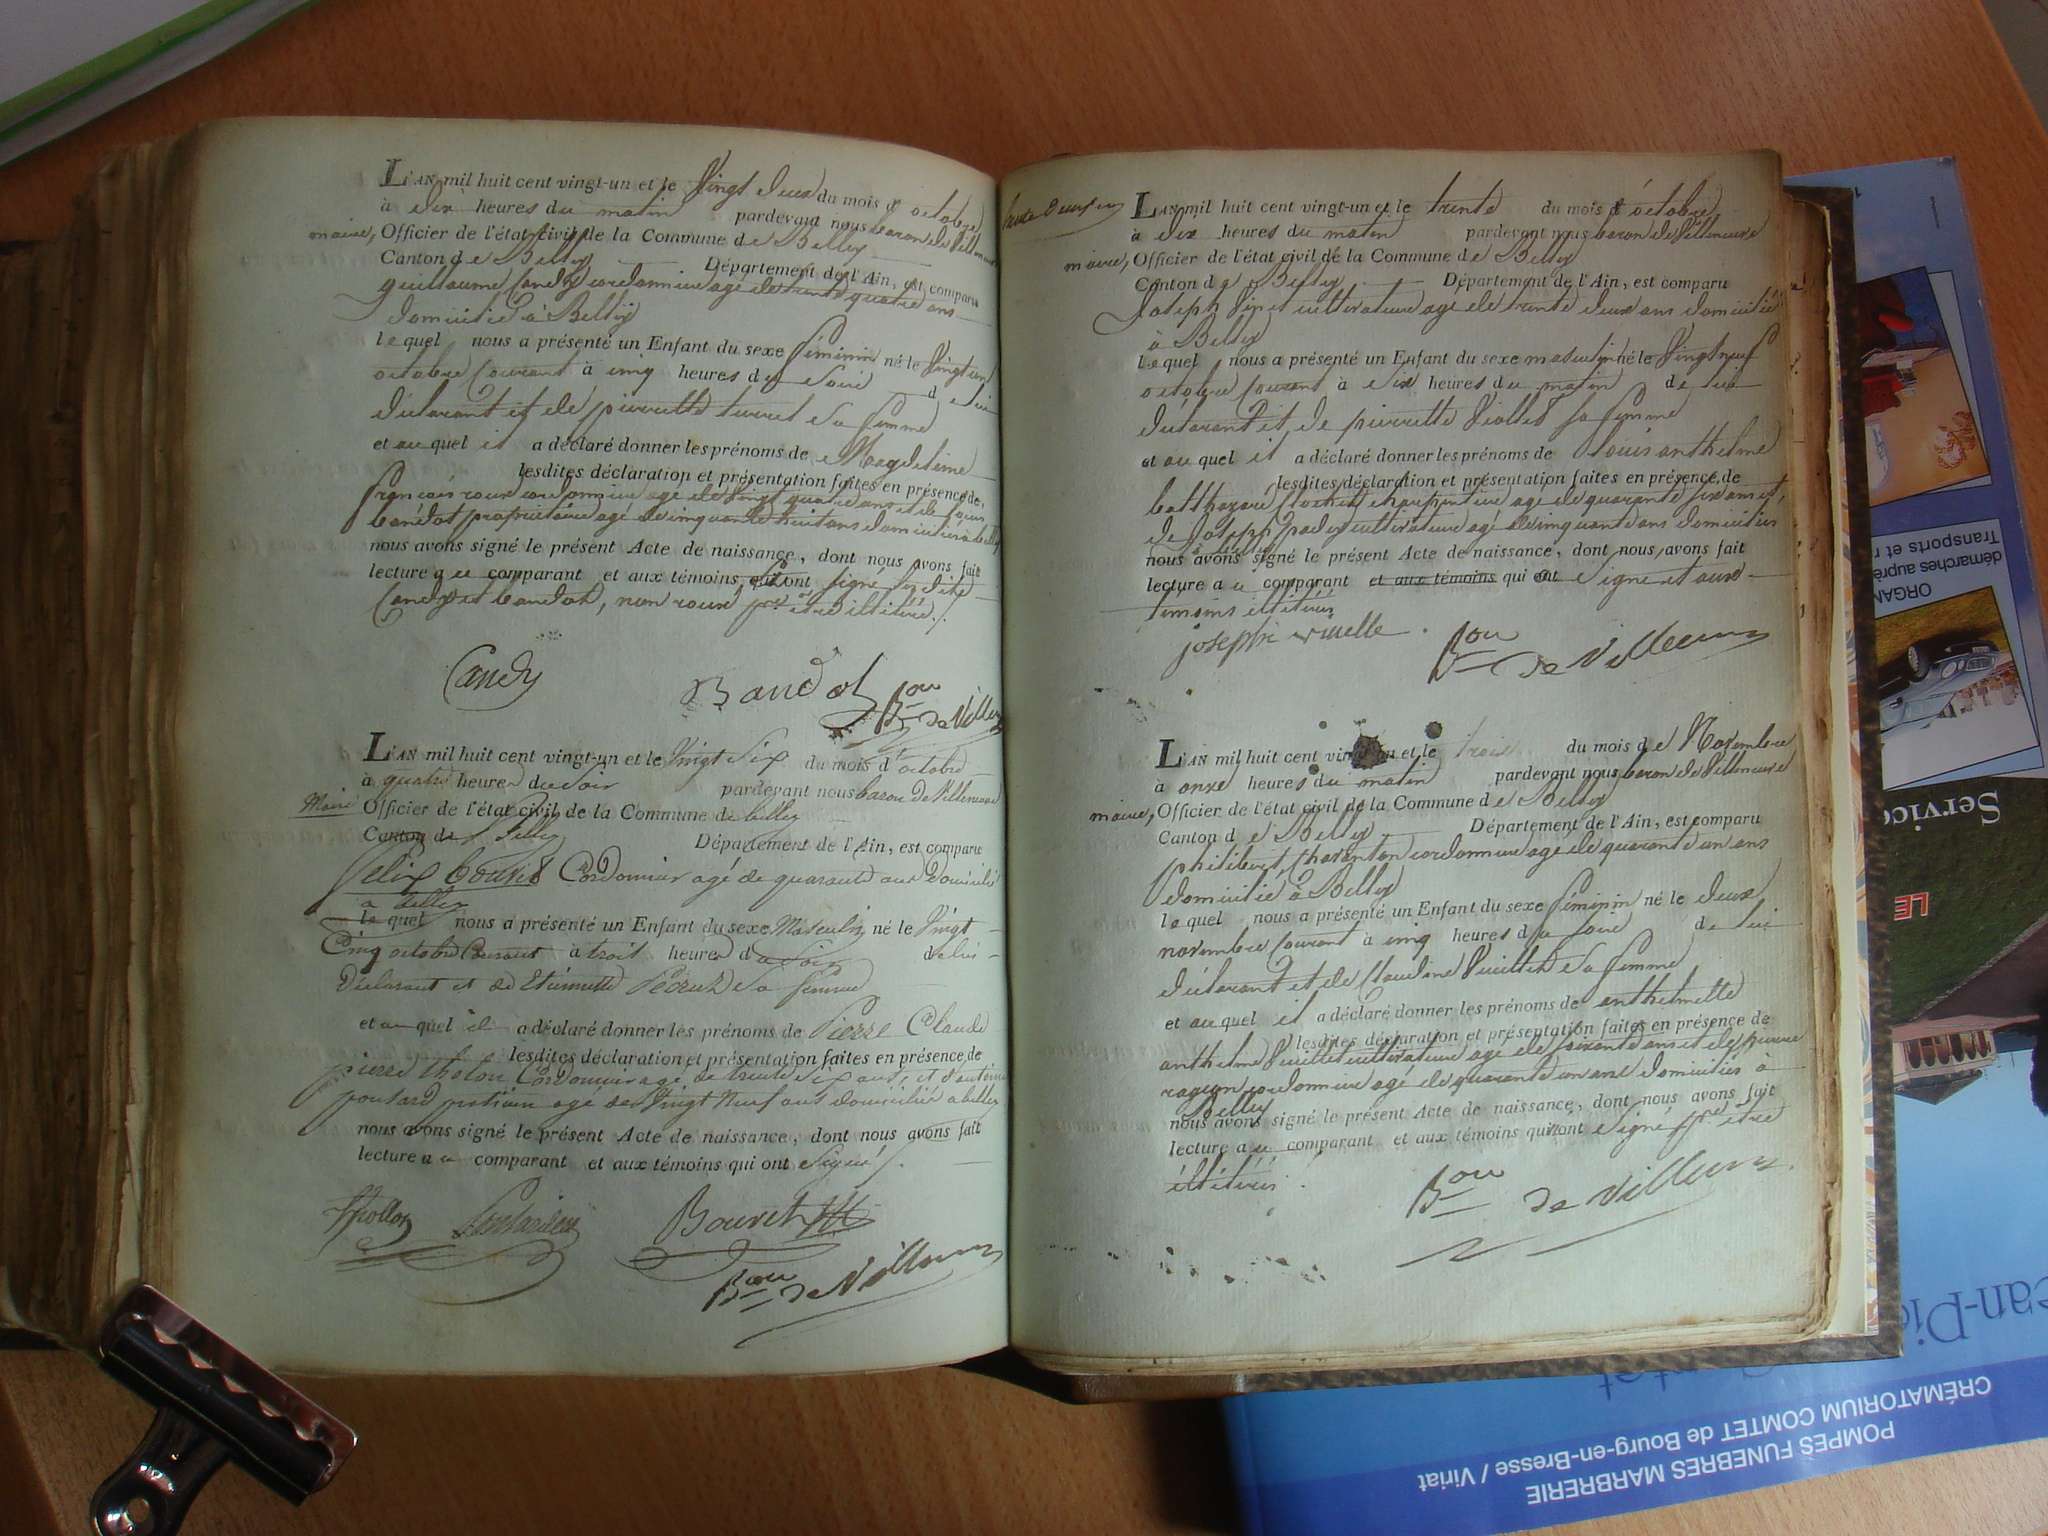 L'AN mil huit cent vingt-un et le Vingt deux du mois d'octobre
à dix heures du matin pardevant nous baron de Villeneuve
maire, Officier de l'état civil de la Commune de Belley
Canton de Belley Département de l'Ain, est comparu
guillaume Candy cordonnier agé de trente quatre ans
domicilié à Belley
lequel nous a présenté un Enfant du sexe féminin né le Vingt un
octobre Courant à cinq heures du Soir de lui
déclarant et de pierrette turret sa femme
et auquel il a déclaré donner les prénoms de Magdeleine
lesdites déclaration et présentation faites en présence de,
françois roux cordonnier agé de Vingt quatre ans et de
bandot propriétaire agé de cinquante huit ans domiciliés à belley
nous avons signé le présent Acte de naissance, dont nous avons fait
lecture au comparant et aux témoins qui ont signé lesdits
Candy et bandot, non roux pr être illitéré./.
Candy
Bandot
Bon de Villeneuve
L'AN mil huit cent vingt-un et le Vingt Six du mois d'octobre
à quatre heures du Soir pardevant nous baron de Villeneuve
Maire Officier de l'état civil de la Commune de belley
Canton de Belley Département de l'Ain, est comparu
felix bouvet Cordonnier agé de quarante ans Domicilié
a belley
lequel nous a présenté un Enfant du sexe Masculin né le Vingt
Cinq octobre Courant à trois heures du Soir de lui
Déclarant et de Etiennette sa femme
et auquel il a déclaré donner les prénoms de Pierre Claude
lesdites déclaration et présentation faites en présence de
pierre tholon Cordonnier agé de trente Six ans, et d'antoine
agé de Vingt Neuf ans domiciliés a belley
nous avons signé le présent Acte de naissance, dont nous avons fait
lecture au comparant et aux témoins qui ont Signé /.
Bouvet
Bon de Villeneuve
L'AN mil huit cent vingt-un et le trente du mois d'octobre
à dix heures du matin pardevant nous baron de Villeneuve
maire, Officier de l'état civil de la Commune de Belley
Canton de Belley Département de l'Ain, est comparu
Joseph cultivateur agé de trente deux ans domicilié
à Belley
lequel nous a présenté un Enfant du sexe masculin né le Vingt neuf
octobre Courant à Six heures du matin de lui
déclarant et de pierrette Viollet sa femme
et auquel il a déclaré donner les prénoms de Louis anthelme
lesdites déclaration et présentation faites en présence de
balthazard charpentier agé de quarante six ans et,
de Joseph cultivateur agé de cinquante ans domiciliés
nous avons signé le présent Acte de naissance, dont nous avons fait
lecture au comparant et aux témoins qui a Signé et aux
témoins illitérés
joseph
Bon de Villeneuve
L'AN mil huit cent vingt-un et le trois du mois de Novembre
à onze heures du matin pardevant nous baron de Villeneuve
maire, Officier de l'état civil de la Commune de Belley
Canton de Belley Département de l'Ain, est comparu
philibert cordonnier agé de quarante un ans
domicilié à Belley
lequel nous a présenté un Enfant du sexe féminin né le deux
novembre Courant à cinq heures du Soir de lui
déclarant et de Claudine Vuillet sa femme
et auquel il a déclaré donner les prénoms de anthelmette
lesdites déclaration et présentation faites en présence de
anthelme Vuillet cultivateur agé de soixante ans et de pierre
cordonnier agé de quarante un ans domiciliés à
Belley
nous avons signé le présent Acte de naissance, dont nous avons fait
lecture au comparant et aux témoins qui n'ont Signé pr être
illitérés.
Bon de Villeneuve
démarches auprè
Transports et
ORGAN
Service
LE
ean-Pi
POMPES FUNEBRES MARBRERIE
CRÉMATORIUM COMTET de Bourg-en-Bresse / Viriat